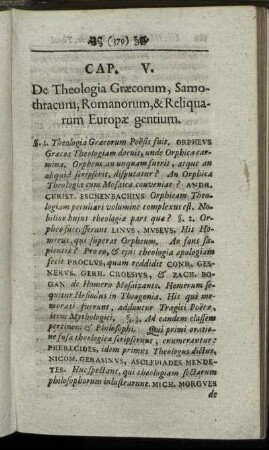 (379)
CAP. V.
De Theologia Græcorum, Samo-
thracum, Romanorum, & Reliqua-
rum Europæ gentium.
§. 1. Theologia Græcorum Poësis fuit. ORPHEVS
Græcos Theologiam docuit, unde Orphica car-
mina. Orpheus an unquam fuerit, atque an
aliquid scripserit, disputatur? An Orphica
Theologia cum Mosaica conveniat? ANDR.
CHRIST. ESCHENBACHIVS Orphicam Theo-
logiam peculiari volumine complexus est. No-
bilior hujus theologiæ pars quæ? §. 2. Or-
pheo successerunt LINVS, MVSEVS. His Ho-
merus, qui superat Orpheum. An fons sa-
pientiæ? Pro eo, & ejus theologia apologiam
fecit PROCLVS, quam reddidit CONR. GES-
NERVS. GERH. CROESIVS, & ZACH. BO-
GAN de Homero Mosaizante. Homerum se-
quitur Hesiodus in Theogonia. His quæ me-
morati fuerunt, adduntur Tragici Poëtæ,
item Mythologici, §. 3. Ad eandem classem
pertinent & Philosophi. Qui primi oratio-
ne fusa theologica scripserunt, enumerantur:
PHERECIDES, idem primus Theologus dictus,
NICOM. GERASINVS, ASCLEPIADES MENDE-
TES. Huc spectant, qui theologiam sectarum
philosopharum inlustrarunt. MICH. MORGVES
de